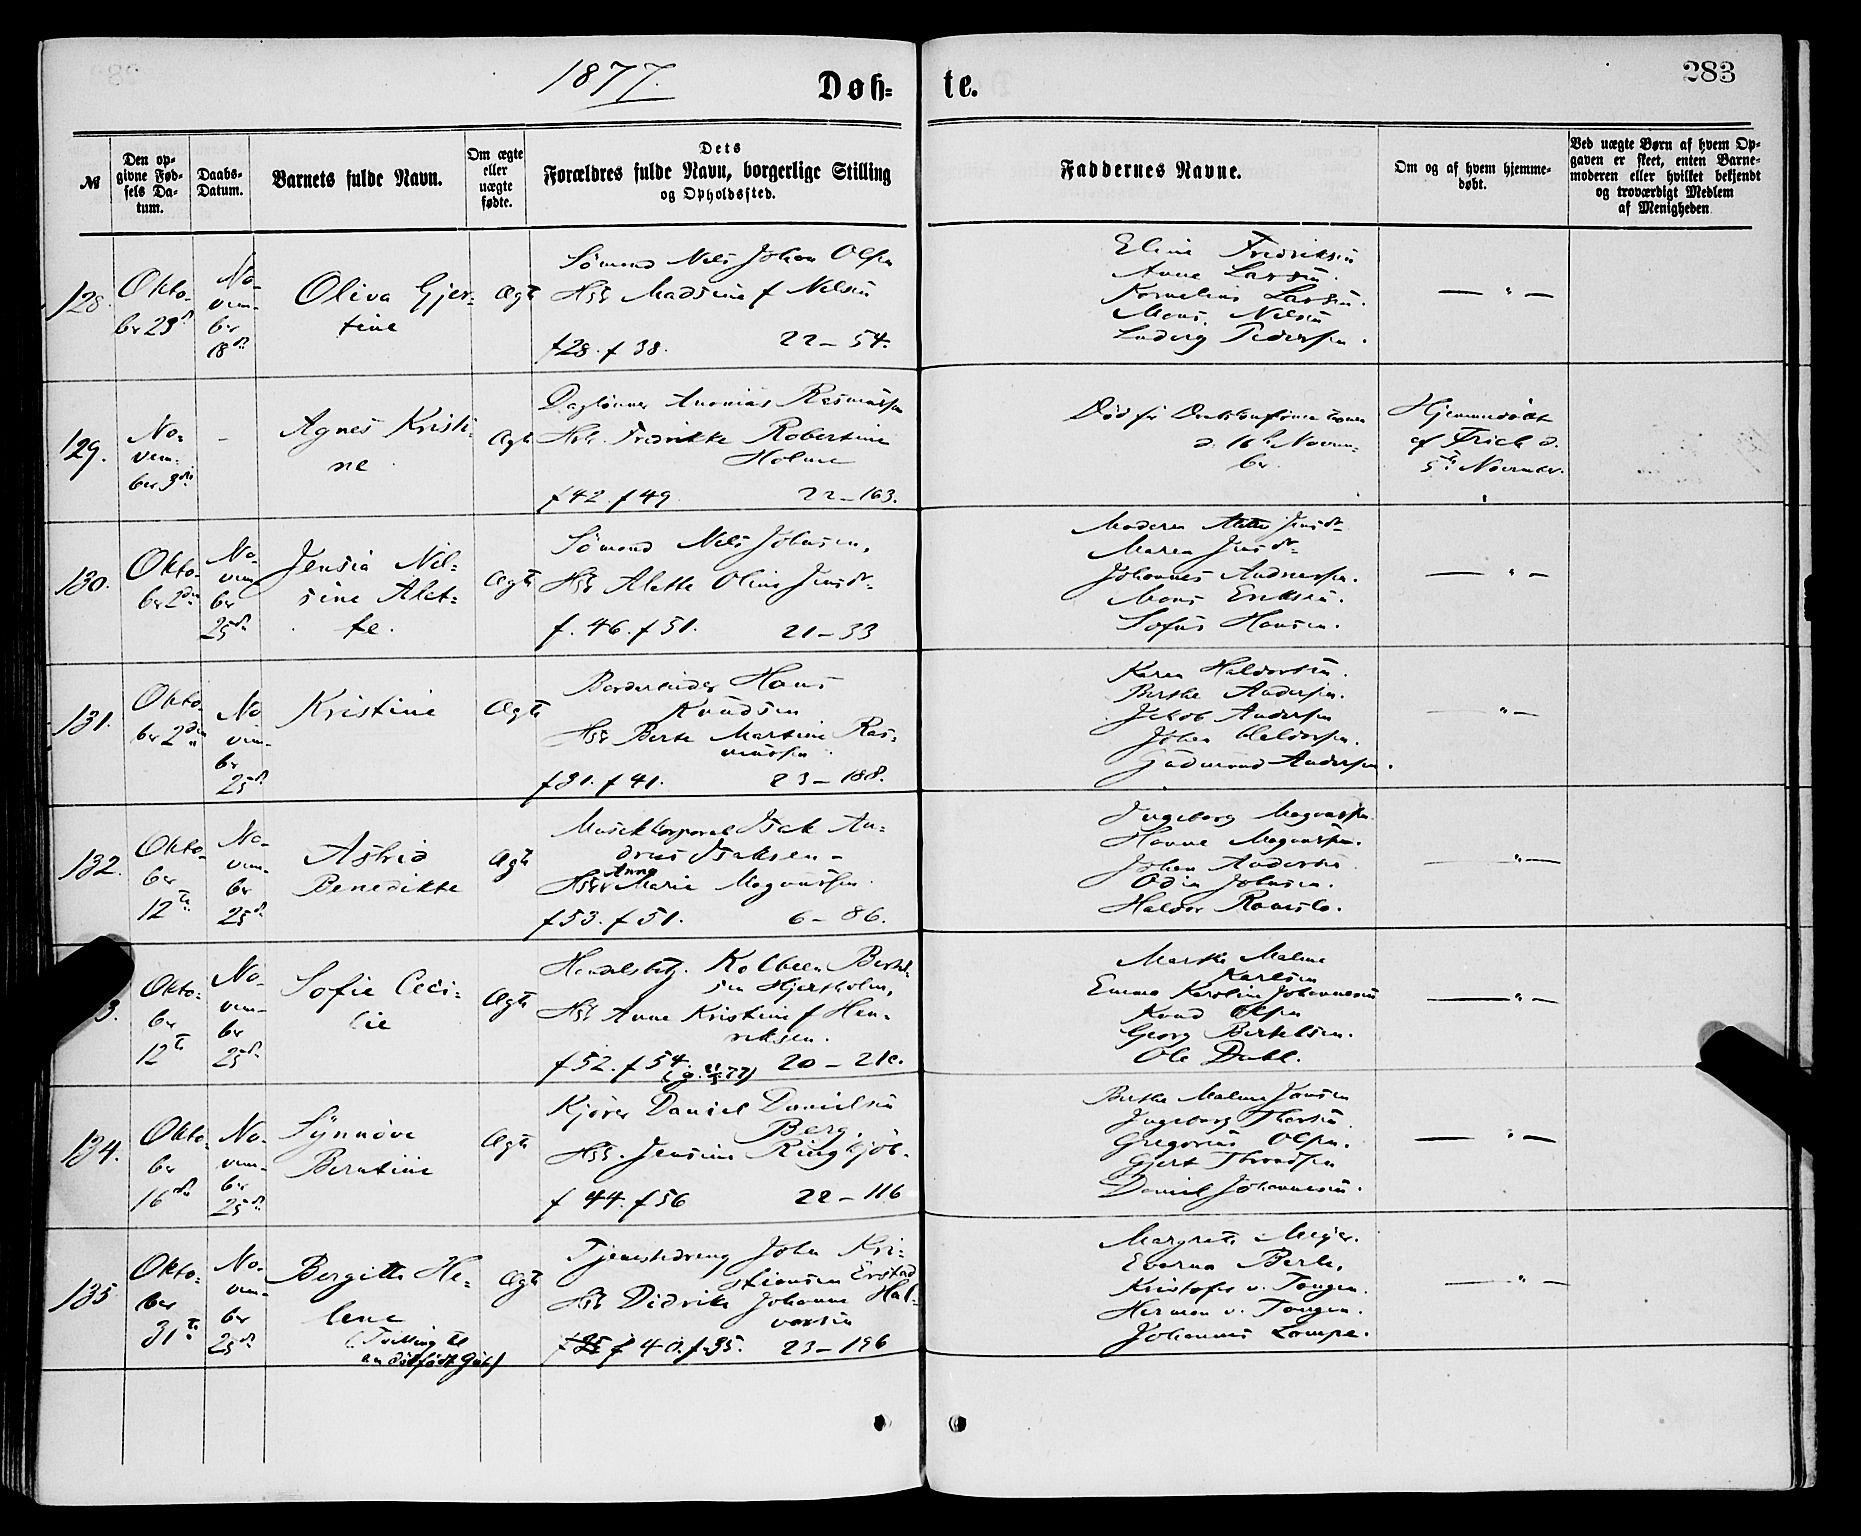 1877.
Døb=te.
283
№
Den op=
givne Fød=
sels Da=
tum.
Daabs=
Datum.
Barnets fulde Navn.
Om ægte
eller
uægte
fødte.
Dets
Forældres fulde Navn, borgerlige Stilling
og Opholdssted.
Faddernes Navne.
Om og af hvem hjemme=
døbt.
Ved uægte Børn af hvem Op=
gaven er skeet, enten Barne=
moderen eller hvilket bekjendt
og troværdigt Medlem
af Menigheden
128.
Okto-
ber 29d
No-
vem-
ber
18d.
Oliva Gjer-
tine
Ægte
Sømand Nils Johan Olsen
Hst Madsine f Nilsen
f 28. f 38. 22 – 54.
Eline Fredriksen
Anna Larsen.
Kornelius Larsen.
Mons Nilsen
Ludvig Pedersen.
— " —
129.
No-
vem-
ber 3die
-
Agnes Kristi-
ne
Ægte
Daglønner Ananias Rasmussen
Hst. Fredrikke Robertine
Holme
f 42. f 49. 22 – 163.
Død før
d. 16de Novem-
ber.
Hjemmedøbt
af Frich d.
5te November.
130.
Okto-
ber 2den
No-
vem-
ber
25d.
Jensia Nil-
sine Alet-
te.
Ægte
Sømand Nils Johnsen,
Hst Alette Oline Jensdr.
f. 46. f 51. 21 – 33
Moderen Alette Jensdr.
Maren Jensdr.
Johannes Andreassen.
Mons Eriksen.
Sofus Hansen.
— " —
131.
Okto-
ber 2den
No
vem-
ber
25d
Kristine
Ægte
Hans
Knudsen
Hst Berte Martine Ras-
mussen
f 31. f 41. 23 – 188.
Karen Haldorsen.
Berthe Andersen.
Jakob Andersen
Johan Haldorsen.
Gudmund Andersen.
— " —
132.
Okto-
ber
12te
No-
vem-
ber
25d.
Astrid
Benedikte
Ægte
Musikkorporal Isak An-
dreas Isaksen –
Anna
Hst Marie Magnussen.
f 53. f 51. 6 – 86.
Ingeborg Magnussen.
Hanne Magnussen.
Johan Andersen
Odin Johnsen.
Haldor
— " —
3.
Okto-
ber
12te
No-
vem-
ber
25d.
Sofie Ceci-
lie
Ægte
Handelsbetj. Kolbein Bertel-
sen Hjertholm,
Hst Anne Kristine f Hen-
riksen.
f 52. f 54. 20 – 21c.
Marthe Malene
Karlsen
Emma Karoline Johannesen
Knud Olsen
Georg Bertelsen.
Ole Dahl.
— " —
134.
Okto-
ber
16de
No-
vem-
ber
25d.
Synnøve
Berntine
Ægte
Kjører Daniel Danielsen
Berg.
Hst. Jensine Ringkjøb.
f 44. f 56 22 – 116
Berthe Malene Jansen
Ingeborg Thorsen.
Gregorius Olsen.
Gjert Throndsen
Daniel Johannesen.
— " —
135
Okto-
ber
31te
No-
vem-
ber
25d
Bergitte He-
lene
(Tvilling til
en dødfødt Gut)
Ægte
Tjenestedreng John Kri-
stiansen Erstad
Hst Didrike Johanne Hal-
vorsen
f 40. f 35. 23 – 196
Margrethe Meyer.
Everna Berle.
Kristofer v. Tangen.
Herman v. Tangen.
Johannes Lampe.
— " —